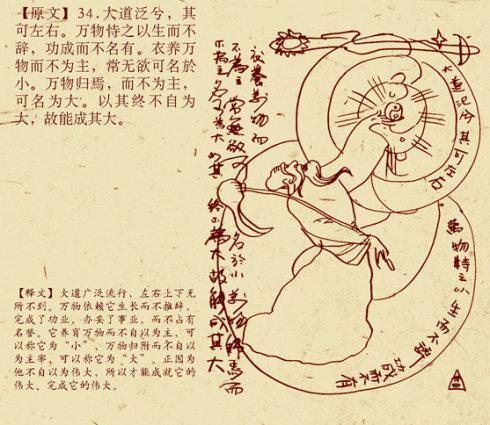 【原文】34.大道泛兮，其
可左右。万物恃之以生而不
辞，功成而不名有。衣养万
物而不为主，常无欲可名於
小。万物归焉，而不为主，
可名为大。以其终不自为
大，故能成其大。
大道泛兮其可左右
萬物恃之以生而不辭
功成不名有
衣養萬物而
不為主常無欲可
名於小萬物歸焉而
不為主可名為大以其終不為大故能成其大
【释文】大道广泛流行，左右上下无
所不到。万物依赖它生长而不推辞，
完成了功业、办妥了事业，而不占有
名誉。它养育万物而不自以为主，可
以称它为“小”。万物归附而不自以
为主宰，可以称它为“大”。正因为
他不自以为伟大，所以才能成就它的
伟大、完成它的伟大。